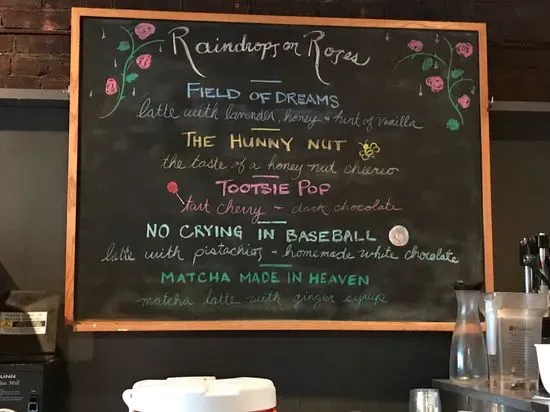 Raindrops on Roses
FIELD OF DREAMS
latte with lavender, honey + hint of vanilla
THE HUNNY NUT
the taste of a honey nut cheerio
TOOTSIE POP
tart cherry + dark chocolate
NO CRYING IN BASEBALL
latte with pistachios + homemade white chocolate
MATCHA MADE IN HEAVEN
matcha latte with ginger syrup
PLEASE